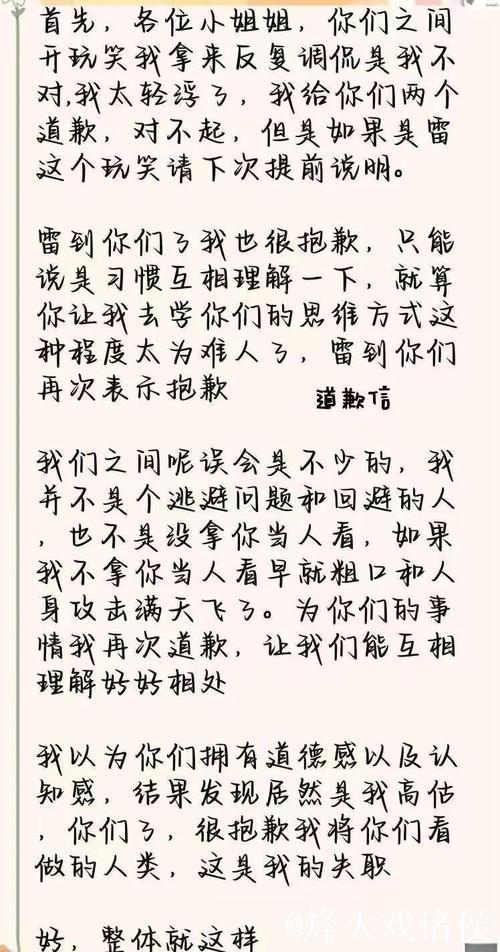 首先，各位小姐姐，你们之间
开玩笑我拿来反复调侃是我不
对,我太轻浮了，我给你们两个
道歉，对不起，但是如果是雷
这个玩笑请下次提前说明。
雷到你们了我也很抱歉，只能
说是习惯互相理解一下，就算
你让我去学你们的思维方式这
种程度太为难人了，雷到你们
再次表示抱歉
道歉信
我们之间呢误会是不少的，我
并不是个逃避问题和回避的人
，也不是没拿你当人看，如果
我不拿你当人看早就粗口和人
身攻击满天飞了。为你们的事
情我再次道歉，让我们能互相
理解好好相处
我以为你们拥有道德感以及认
知感，结果发现居然是我高估
，你们了，很抱歉我将你们看
做的人类，这是我的失职
好，整体就这样
@烽火戏诸侯